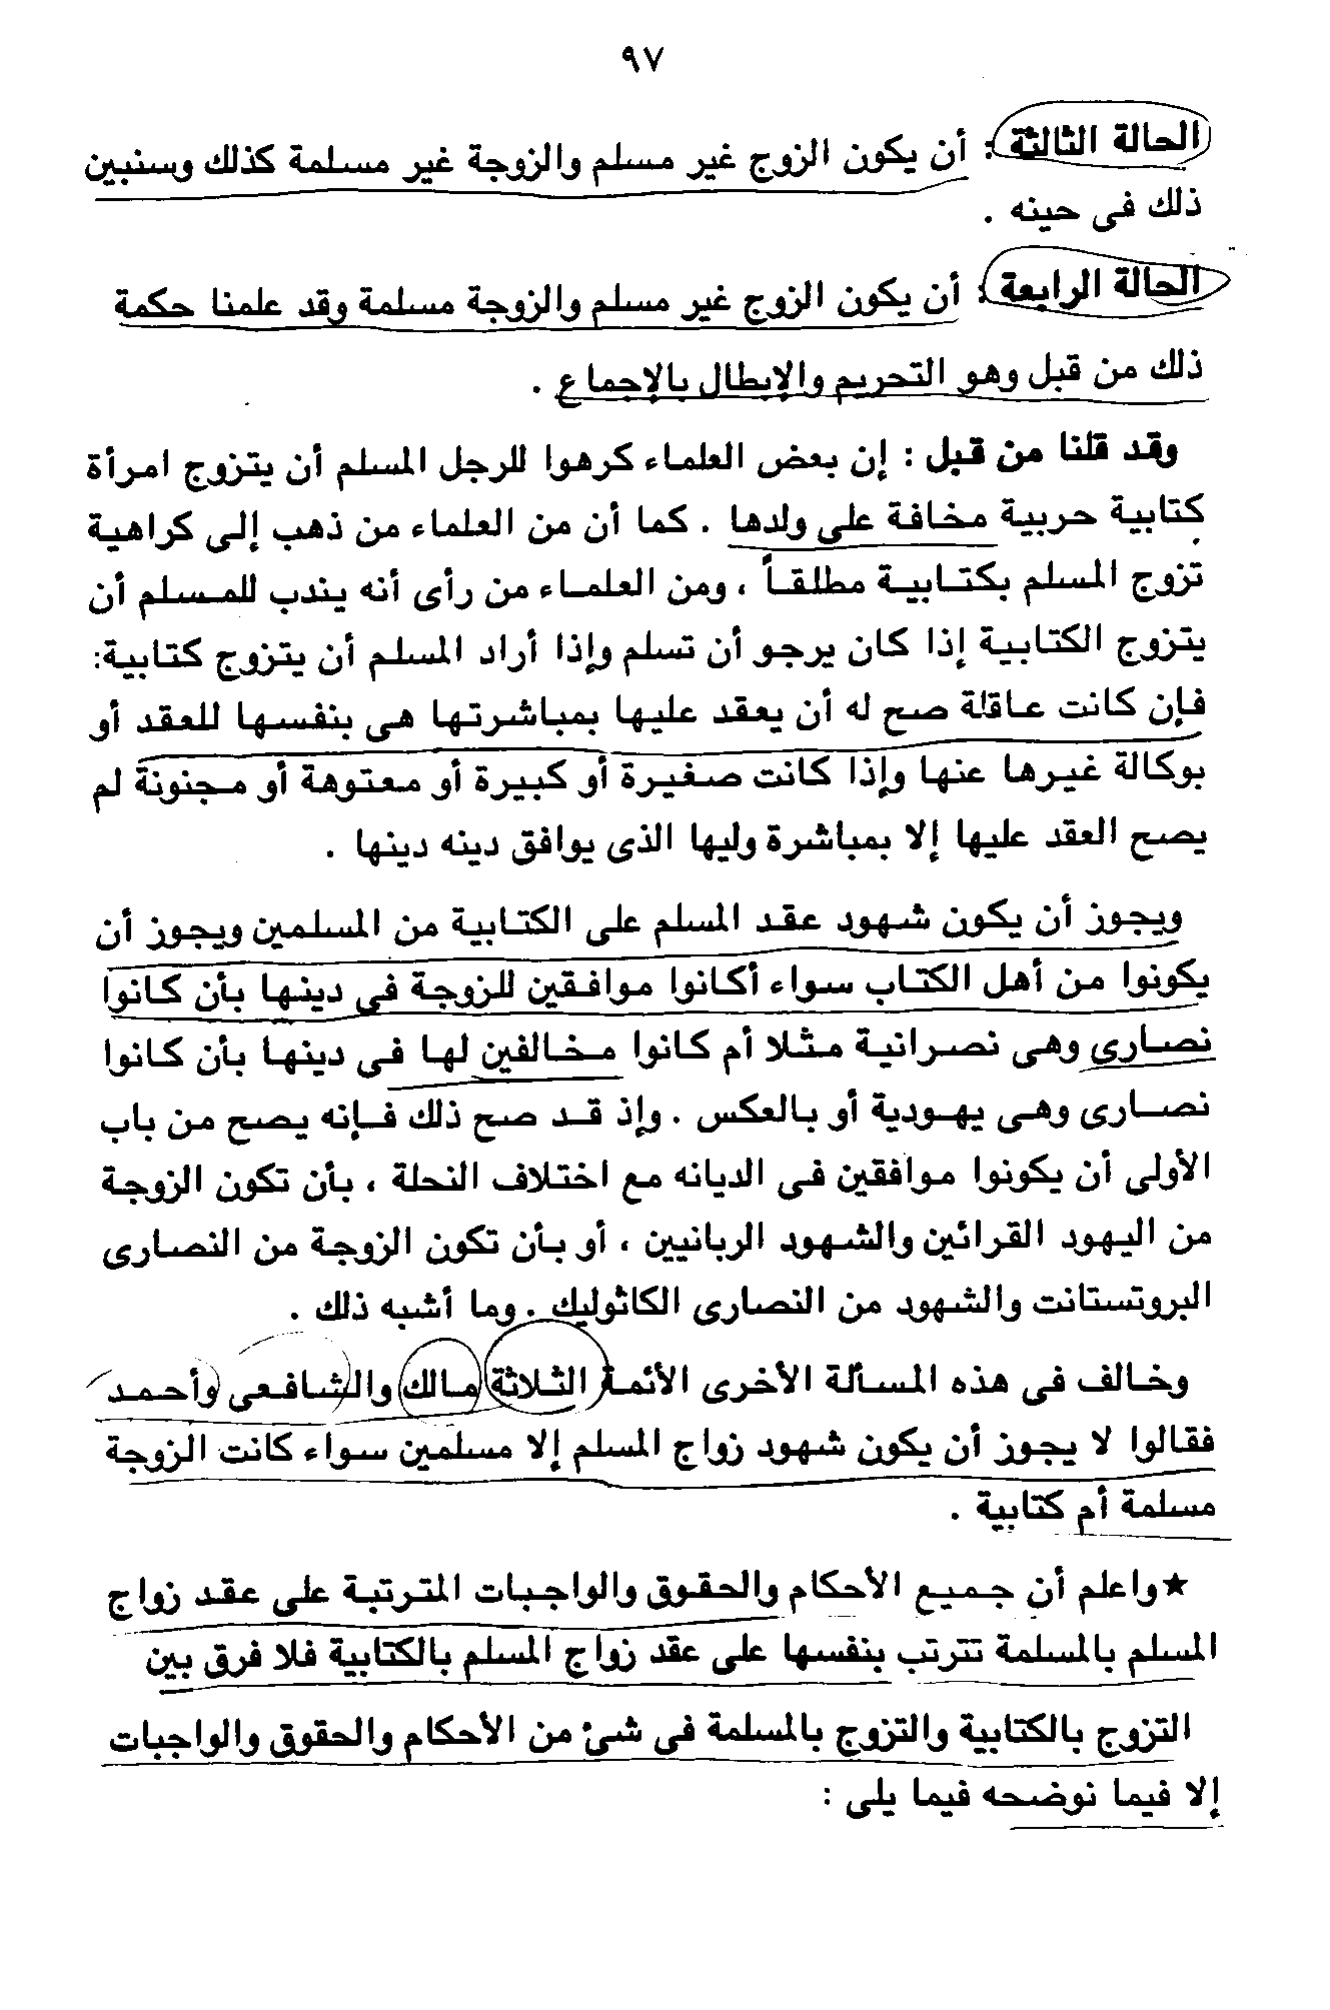 ٩٧
الحالة الثالثة : أن يكون الزوج غير مسلم والزوجة غير مسلمة كذلك وسنبين
ذلك فى حينه .
الحالة الرابعة : أن يكون الزوج غير مسلم والزوجة مسلمة وقد علمنا حكمة
ذلك من قبل وهو التحريم والإبطال بالإجماع .
وقد قلنا من قبل : إن بعض العلماء كرهوا للرجل المسلم أن يتزوج امرأة
كتابية حربية مخافة على ولدها . كما أن من العلماء من ذهب إلى كراهية
تزوج المسلم بكتابية مطلقاً ، ومن العلماء من رأى أنه يندب للمسلم أن
يتزوج الكتابية إذا كان يرجو أن تسلم وإذا أراد المسلم أن يتزوج كتابية:
فإن كانت عاقلة صح له أن يعقد عليها بمباشرتها هى بنفسها للعقد أو
بوكالة غيرها عنها وإذا كانت صغيرة أو كبيرة أو معتوهة أو مجنونة لم
يصح العقد عليها إلا بمباشرة وليها الذى يوافق دينه دينها .
ويجوز أن يكون شهود عقد المسلم على الكتابية من المسلمين ويجوز أن
يكونوا من أهل الكتاب سواء أكانوا موافقين للزوجة فى دينها بأن كانوا
نصارى وهى نصرانية مثلا أم كانوا مخالفين لها فى دينها بأن كانوا
نصارى وهى يهودية أو بالعكس . وإذ قد صح ذلك فإنه يصح من باب
الأولى أن يكونوا موافقين فى الديانه مع اختلاف النحلة ، بأن تكون الزوجة
من اليهود القرائين والشهود الربانيين ، أو بأن تكون الزوجة من النصارى
البروتستانت والشهود من النصارى الكاثوليك . وما أشبه ذلك .
وخالف فى هذه المسألة الأخرى الأئمة الثلاثة مالك والشافعى وأحمد
فقالوا لا يجوز أن يكون شهود زواج المسلم إلا مسلمين سواء كانت الزوجة
مسلمة أم كتابية .
★واعلم أن جميع الأحكام والحقوق والواجبات المترتبة على عقد زواج
المسلم بالمسلمة تترتب بنفسها على عقد زواج المسلم بالكتابية فلا فرق بين
التزوج بالكتابية والتزوج بالمسلمة فى شئ من الأحكام والحقوق والواجبات
إلا فيما نوضحه فيما يلى :